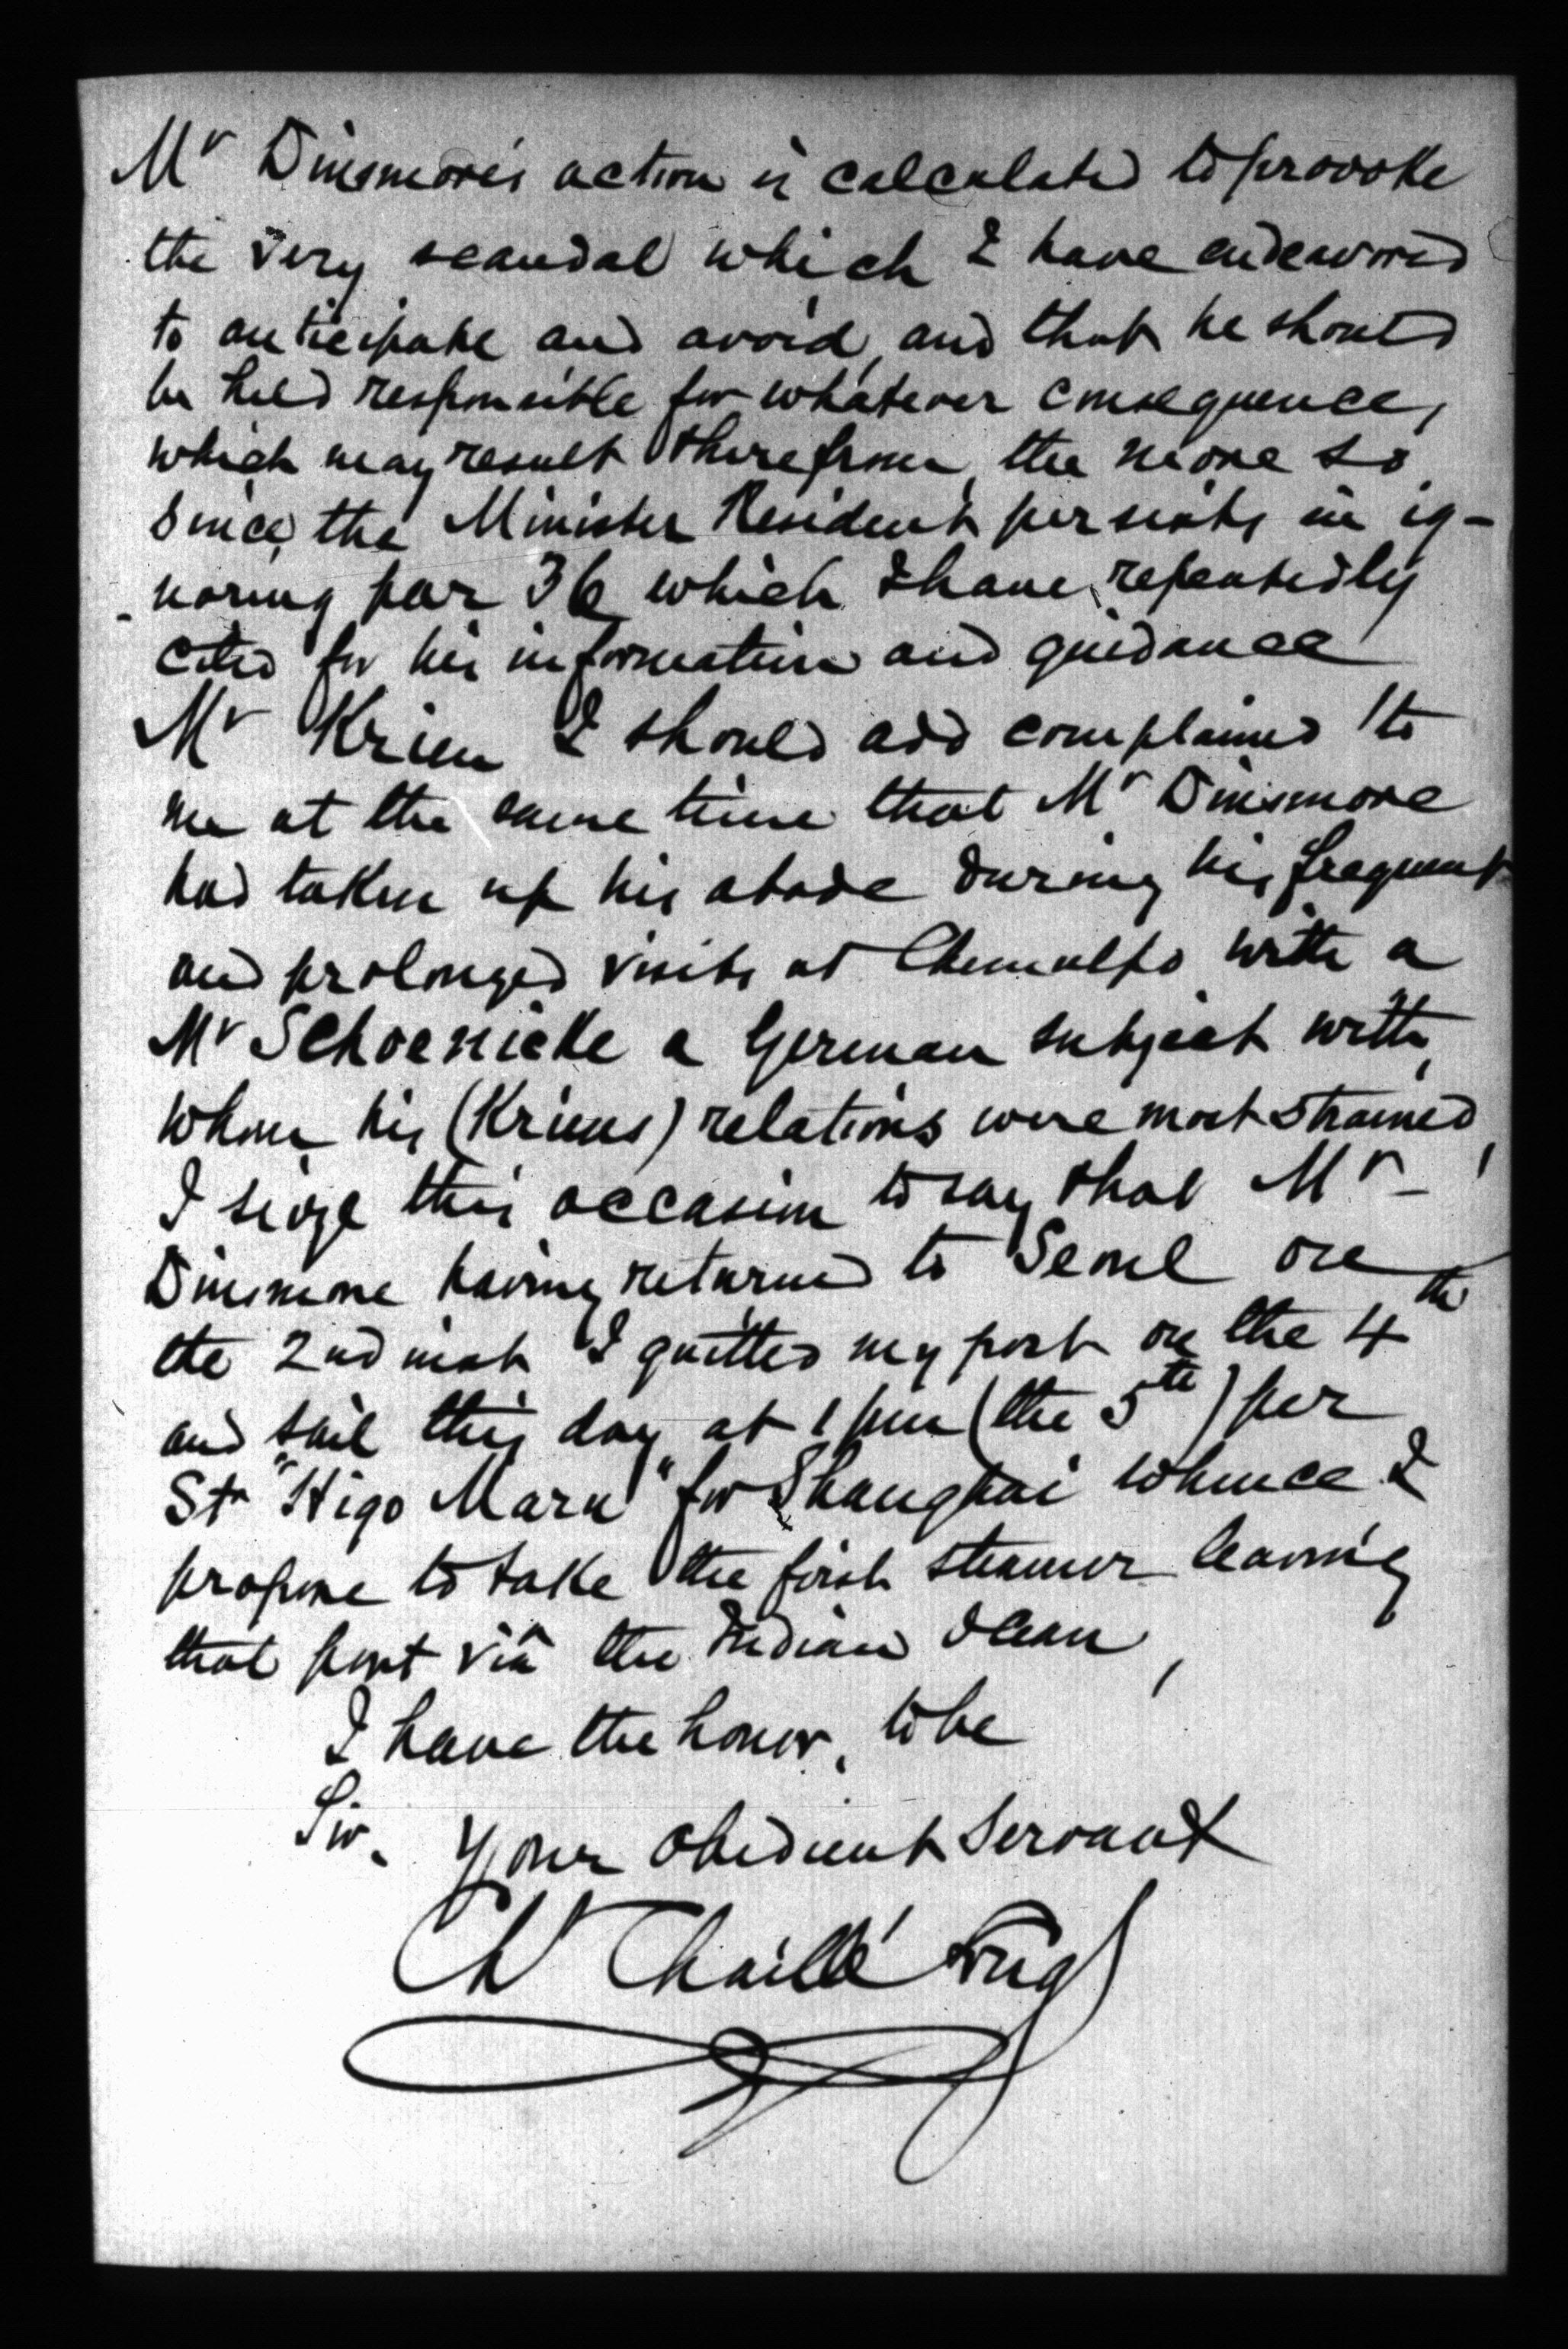 Mr Dinsmore's action is calculated to provoke
the very scandal which I have endeavored
to anticipate and avoid, and that he should
be held responsible for whatever consequence,
which may result therefrom, the more so
since, the Minister Resident persists in ig-
noring par 36 which I have repeatedly
cited for his information and guidance
Mr Krien I should add complained to
me at the same time that Mr Dinsmore
had taken up his abode during his frequent
and prolonged visits at Chemulpo with a
Mr Schoenicke a German subject with,
whom his (Kriens) relations were most strained,
I seize this occasion to say that Mr -
Dinsmore having returned to Seoul on
the 2nd inst I quitted my post on the 4th
and sail this day at 1 pm (the 5th) per
Str "Higo Maru" for Shanghai whence I
propose to take the first steamer leaving
that port viâ the Indian Ocean,
I have the honor, to be
Sir. Your obedient Servant
Ch Chaillé Long